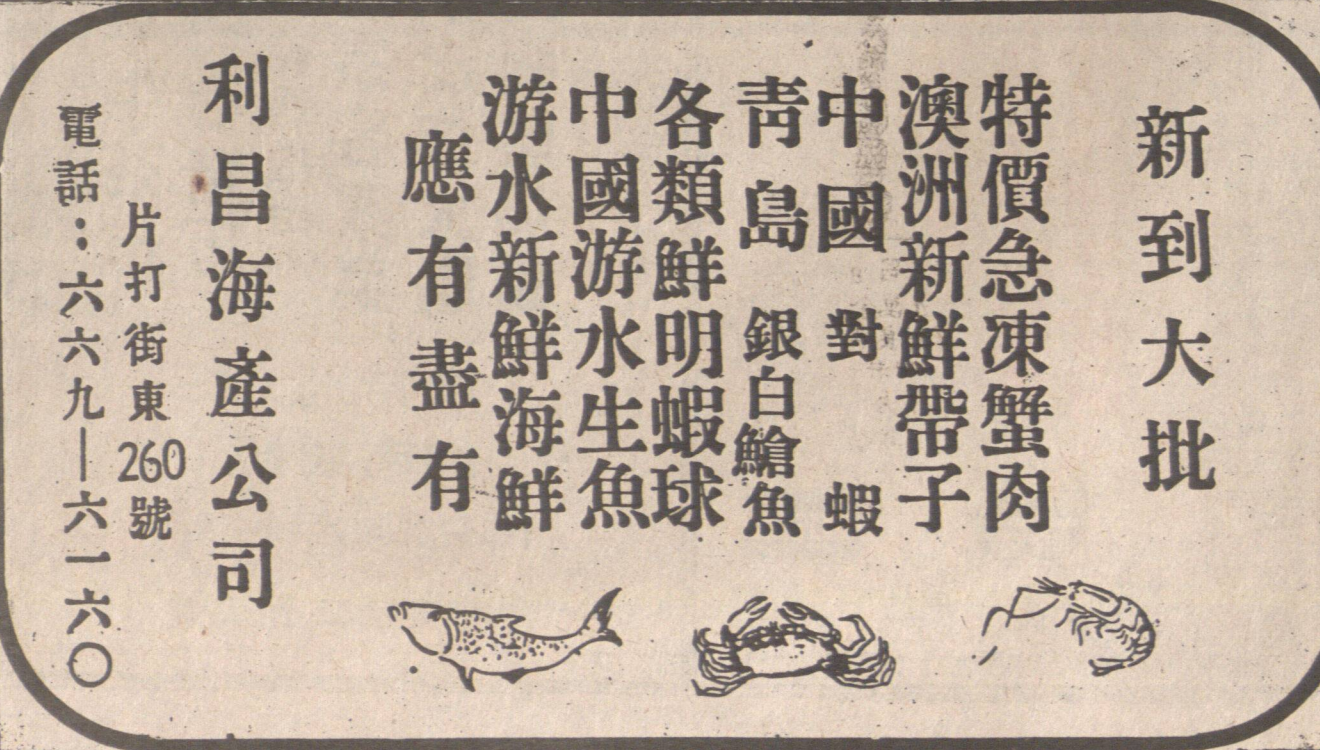 新到大批
特價急凍蟹肉
澳洲新鮮帶子
中國對蝦
青島銀白鯧魚
各類鮮明蝦球
中國游水生魚
游水新鮮海鮮
應有盡有
利昌海產公司
片打街東260號
電話：六六九—六一六〇